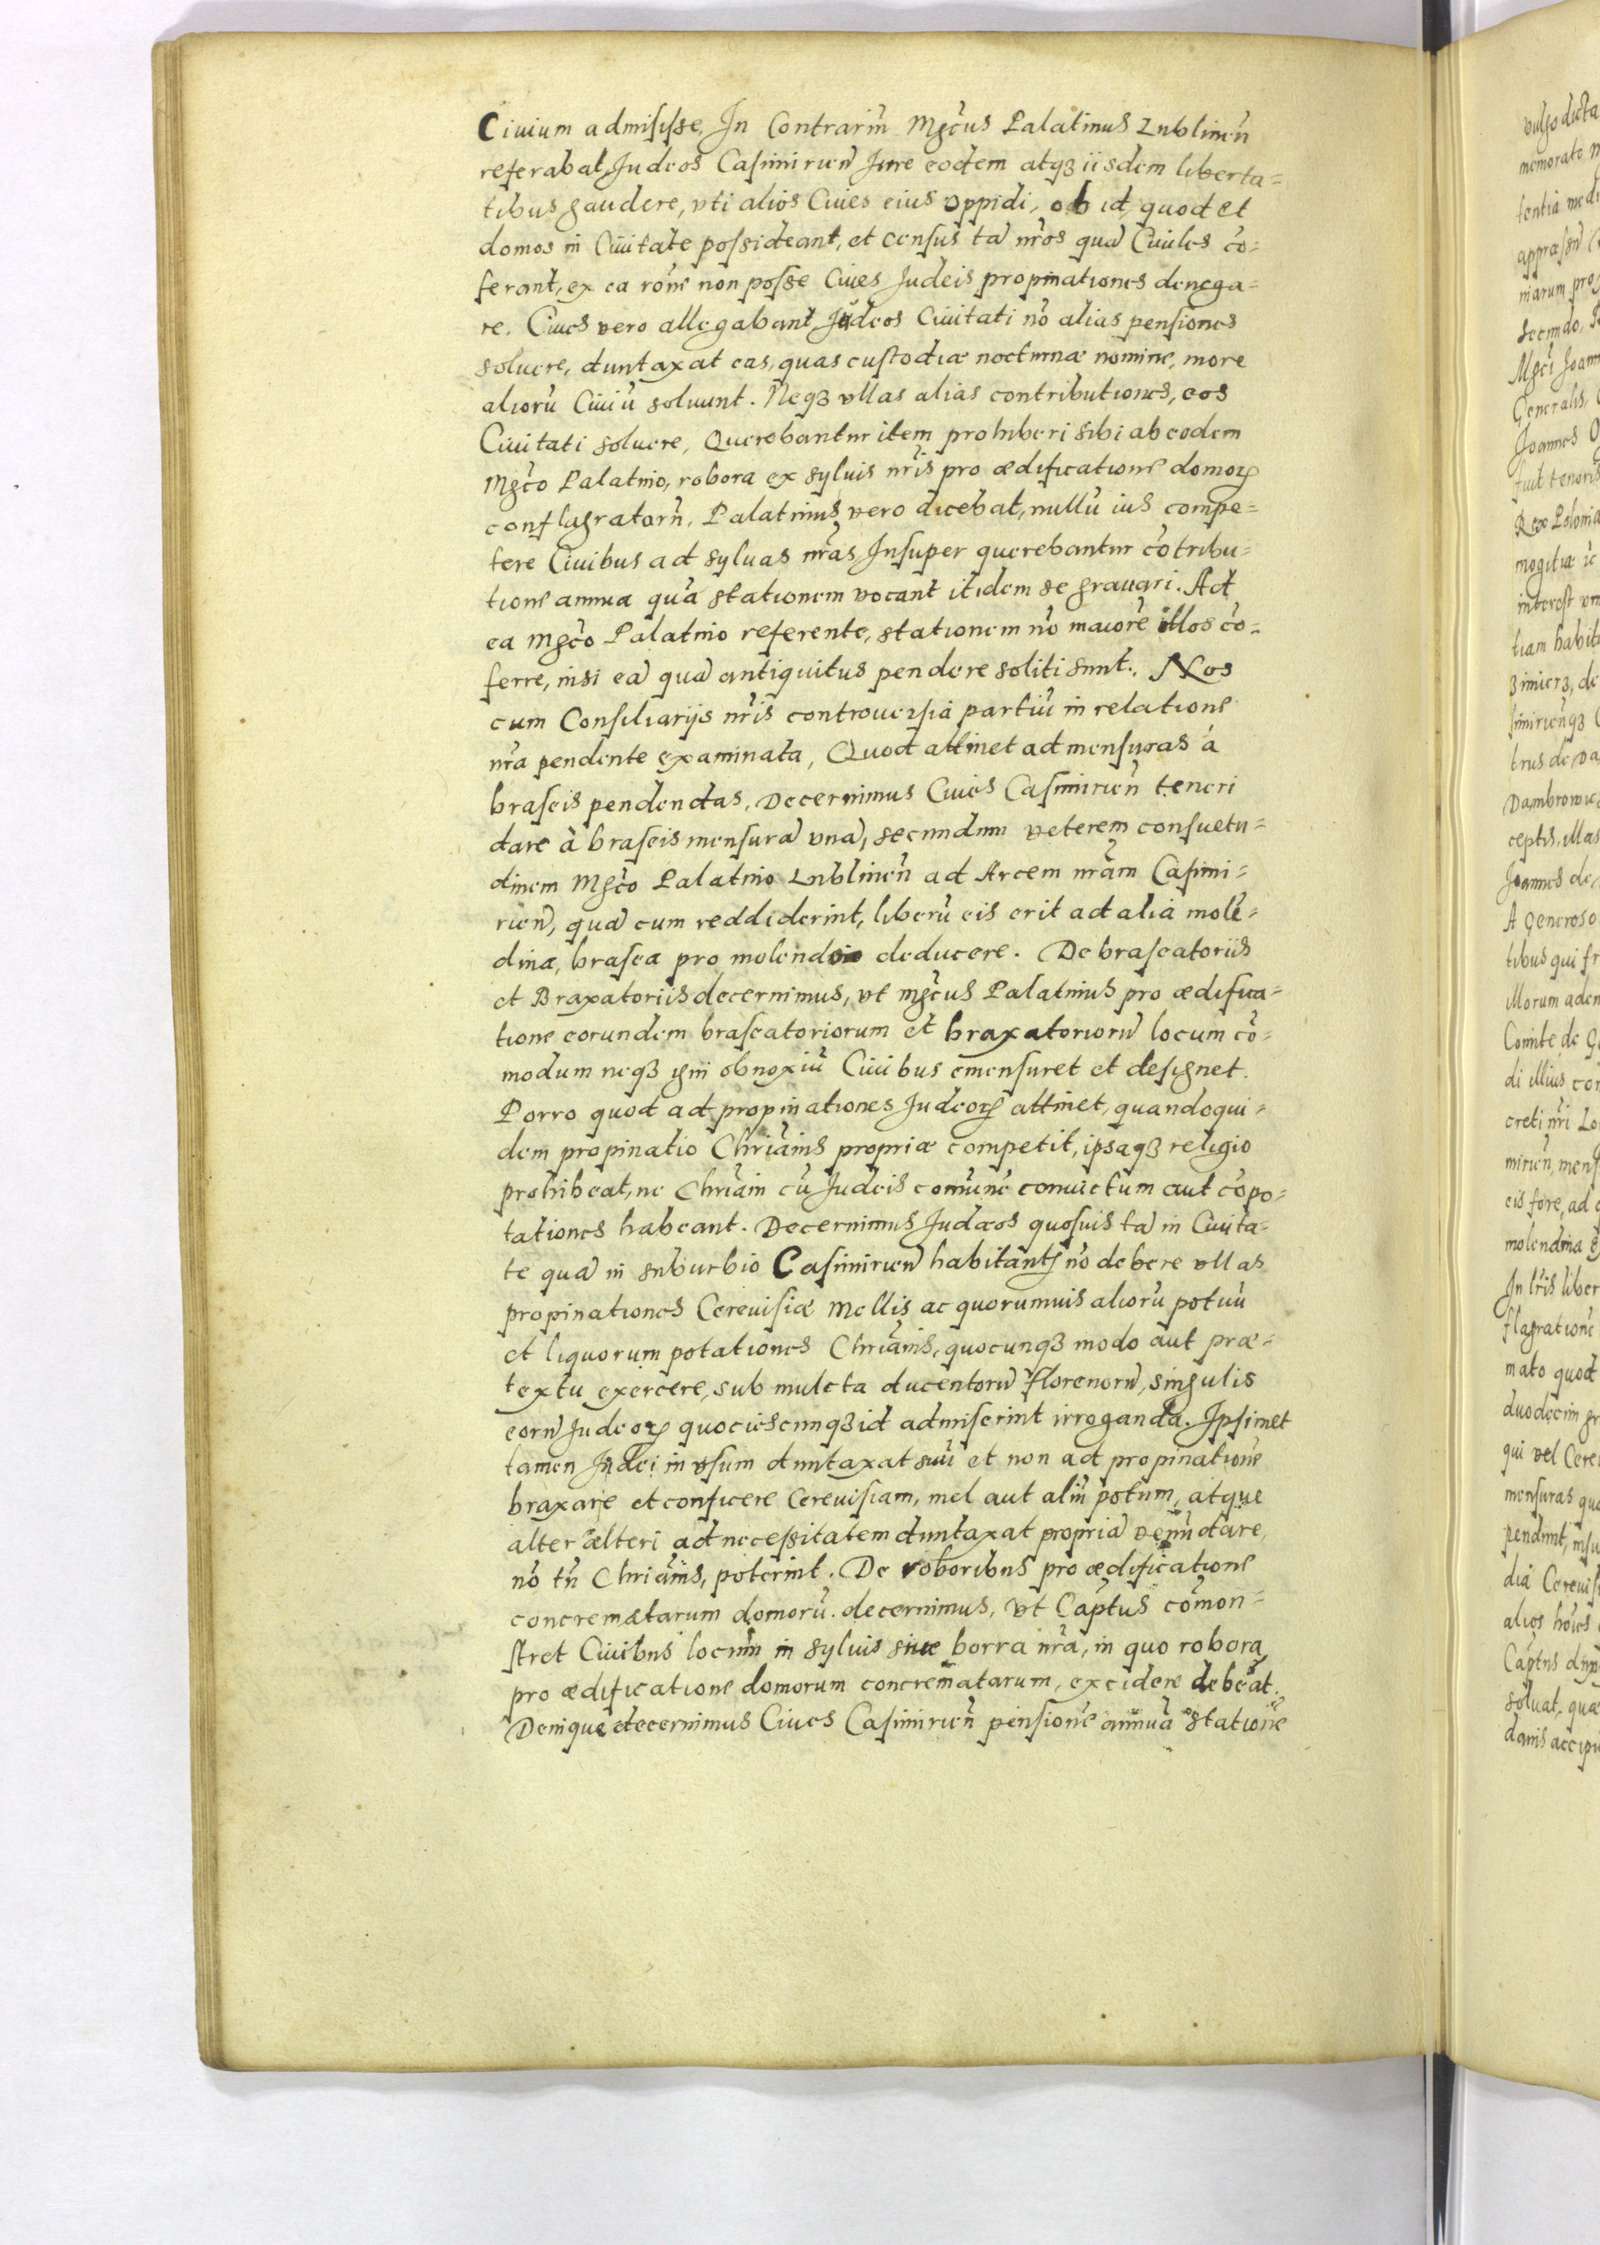 Ciuium admisisse, In Contrariũ Mgc̃us Palatinus Lublineñ
referabat, Judeos Casimirieñ Jure eodem atqȝ iisdem liberta=
tibus gaudere, vti alios Ciues eius oppidi, ob id, quod et
domos in Ciuitate possideant, et census tã nr̃os quã Ciuiles cõ=
ferant, ex ea rõne non posse Ciues Judeis propinationes denega=
re. Ciues vero allegabant Judeos Ciuitati nõ alias pensiones
soluere, duntaxat eas, quas custodiæ nocturnæ nomine, more
aliorũ Ciuiũ soluunt. Neqȝ vllas alias contributiones, eos
Ciuitati soluere, Querebantur item prohiberi sibi ab eodem
Mgc̃o Palatino, robora ex syluis nr̃is pro ædificatione domoꝝ
conflagratorũ, Palatinus vero dicebat, nullũ ius compe=
tere Ciuibus ad syluas nr̃as, Insuper querebantur cõtribu=
tione annua quã stationem vocant itidem se grauari. Ad
ea Mgc̃o Palatino referente, stationem nõ maiorẽ illos cõ=
ferre, nisi eã quã antiquitus pendere soliti sunt. Nos
cum Consiliarijs nr̃is controuersiã partiũ in relatione
nr̃a pendente examinata, Quod attinet ad mensuras á
braseis pendendas, Decernimus Ciues Casimirieñ teneri
dare à braseis mensurã vnã, secundum veterem consuetu=
dinem Mgc̃o Palatino Lublineñ ad Arcem nr̃am Casimi=
rieñ, quã cum reddiderint, liberũ eis erit ad alia molẽ=
dina, brasea pro molendo deducere. De braseatoriis
et Braxatoriis decernimus, vt mgc̃us Palatinus pro ædifica=
tione eorundem braseatoriorum et braxatoriorũ locum cõ=
modum neqȝ igni obnoxiũ Ciuibus emensuret et designet.
Porro quod ad propinationes Judeoꝝ attinet, quandoqui=
dem propinatio Chriãnis propriæ competit, ipsaqȝ religio
prohibeat, ne Chriãni cũ Judeis comũnẽ conuictum aut cõpo=
tationes habeant. Decernimus Judæos quosuis tã in Ciuita=
te quã in suburbio Casimirieñ habitantꝭ nõ debere vllas
propinationes Cereuisiæ Mellis ac quorumuis aliorũ potuũ
et liquorum potationes Chriãnis, quocunqȝ modo aut præ=
textu exercere, sub mulcta ducentorũ florenorũ, singulis
eorũ Judeoꝝ quociescunqȝ id admiserint irroganda. Ipsimet
tamen Judei in vsum duntaxat suũ et non ad propinationẽ
braxare et conficere Cereuisiam, mel aut aliũ potum, atque
alter alteri ad necessitatem duntaxat propriã venũdare,
nõ tñ Chriãnis, poterint. De roboribus pro ædificatione
concrematarum domorũ. decernimus, vt Captũs cõmon=
stret Ciuibus locum in syluis siue borra nr̃a, in quo robora
pro ædificatione domorum concrematarum, excidere debeãt.
Denique decernimus Ciues Casimirieñ pensionẽ annuã stationẽ